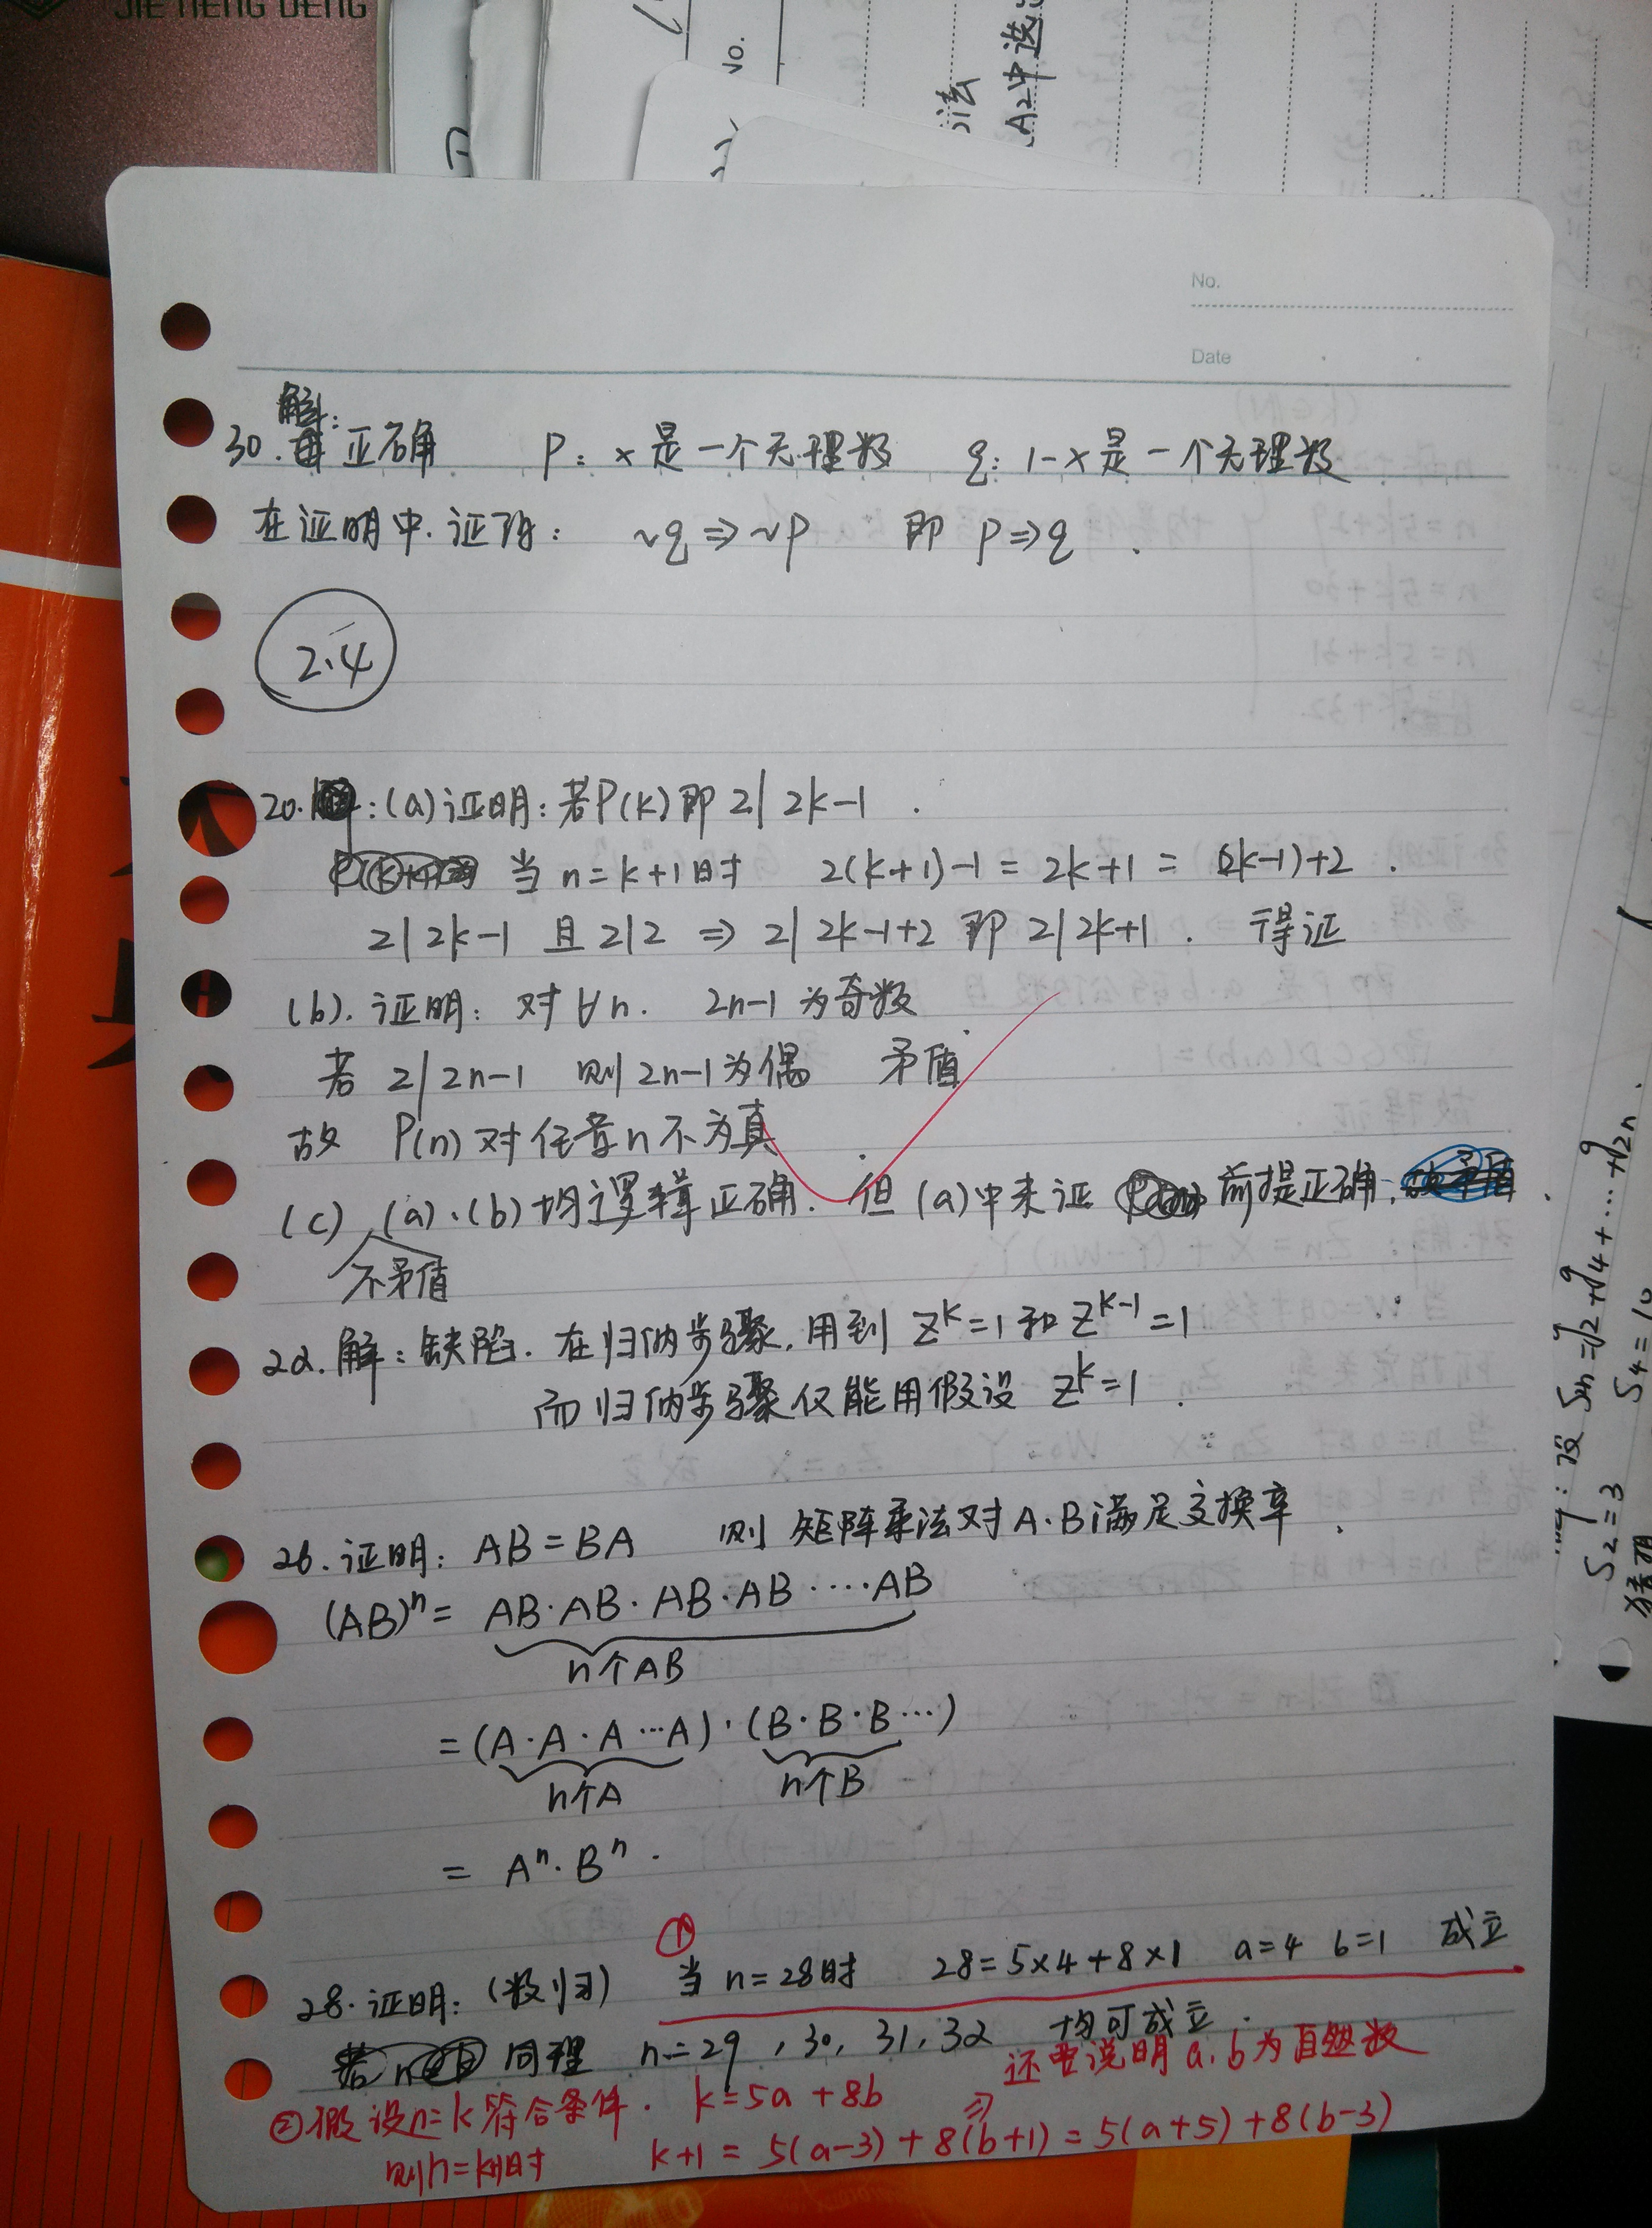 JIE HENG DENG
No.
A2中选
No.
Date
解:
30. 正确 P: x是一个无理数 q: 1-x是一个无理数
在证明中.证明: ~q⇒~P 即 P⇒q .
2.4
20. : (a)证明: 若P(k)即 2| 2k-1 .
当 n=k+1时 2(k+1)-1 = 2k+1 = (2k-1)+2 .
2| 2k-1 且 2|2 ⇒ 2| 2k-1+2 即 2| 2k+1 . 得证
(b). 证明: 对∀n. 2n-1 为奇数
若 2| 2n-1 则 2n-1为偶 矛盾
故 P(n)对任意n不为真
(c) (a)、(b)均逻辑正确. 但(a)中未证 前提正确,
不矛盾
22. 解: 缺陷. 在归纳步骤, 用到 Z^k=1 和 Z^{k-1}=1
而归纳步骤仅能用假设 Z^k=1 .
26. 证明: AB=BA 则 矩阵乘法对A.B满足交换率 .
(AB)^n = AB·AB·AB·AB·····AB
n个AB
= (A·A·A···A)·(B·B·B···)
n个A n个B
= A^n·B^n .
①
28. 证明: (数归) 当 n=28时 28=5×4+8×1 a=4 b=1 成立
同理 n=29 , 30, 31, 32 均可成立 .
还要说明 a.b为自然数
②假设n=k符合条件. k=5a+8b
则n=k+1时 k+1 = 5(a-3)+8(b+1) = 5(a+5)+8(b-3)
S2=3 S4=10